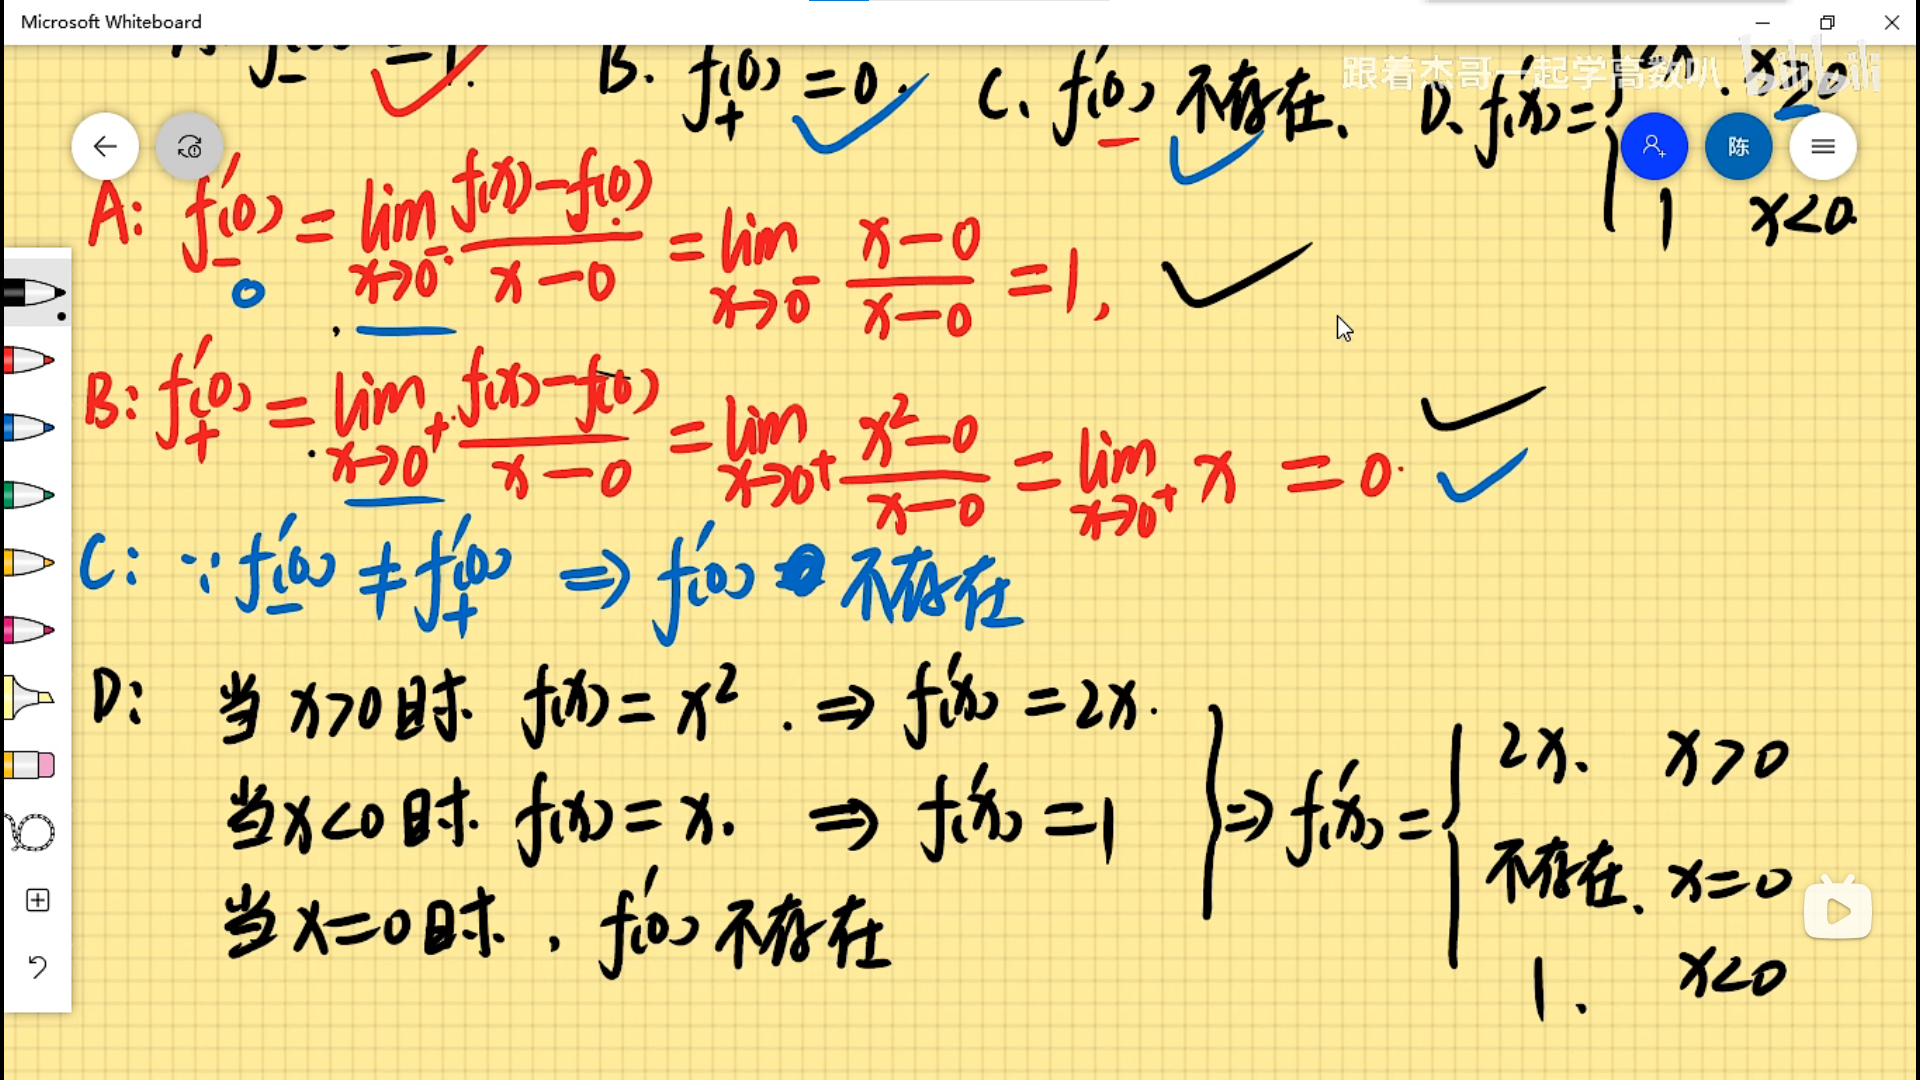 Microsoft Whiteboard
跟着杰哥一起学高数叭 bilibili
B. f₊'(0) = 0. C、f'(0) 不存在、 D、f'(x) = { x≥0
1 x<0.
陈
A: f₋'(0) = lim x→0⁻ (f(x)-f(0))/(x-0) = lim x→0⁻ (x-0)/(x-0) = 1,
B: f₊'(0) = lim x→0⁺ (f(x)-f(0))/(x-0) = lim x→0⁺ (x²-0)/(x-0) = lim x→0⁺ x = 0.
C: ∵ f₋'(0) ≠ f₊'(0) ⇒ f'(0) 不存在
D: 当 x>0 时. f(x) = x². ⇒ f'(x) = 2x.
当 x<0 时. f(x) = x. ⇒ f'(x) = 1
当 x=0 时, f'(0) 不存在
} ⇒ f'(x) = { 2x、 x>0
不存在、 x=0
1、 x<0